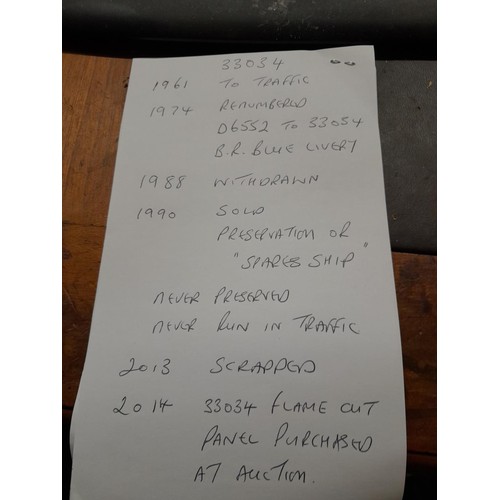 33034
1961 TO TRAFFIC
1974 RENUMBERED
D6552 TO 33034
B.R. BLUE LIVERY
1988 WITHDRAWN
1990 SOLD
PRESERVATION OR
"SPARES SHIP"
NEVER PRESERVED
NEVER RUN IN TRAFFIC
2013 SCRAPPED
2014 33034 FLAME CUT
PANEL PURCHASED
AT AUCTION.